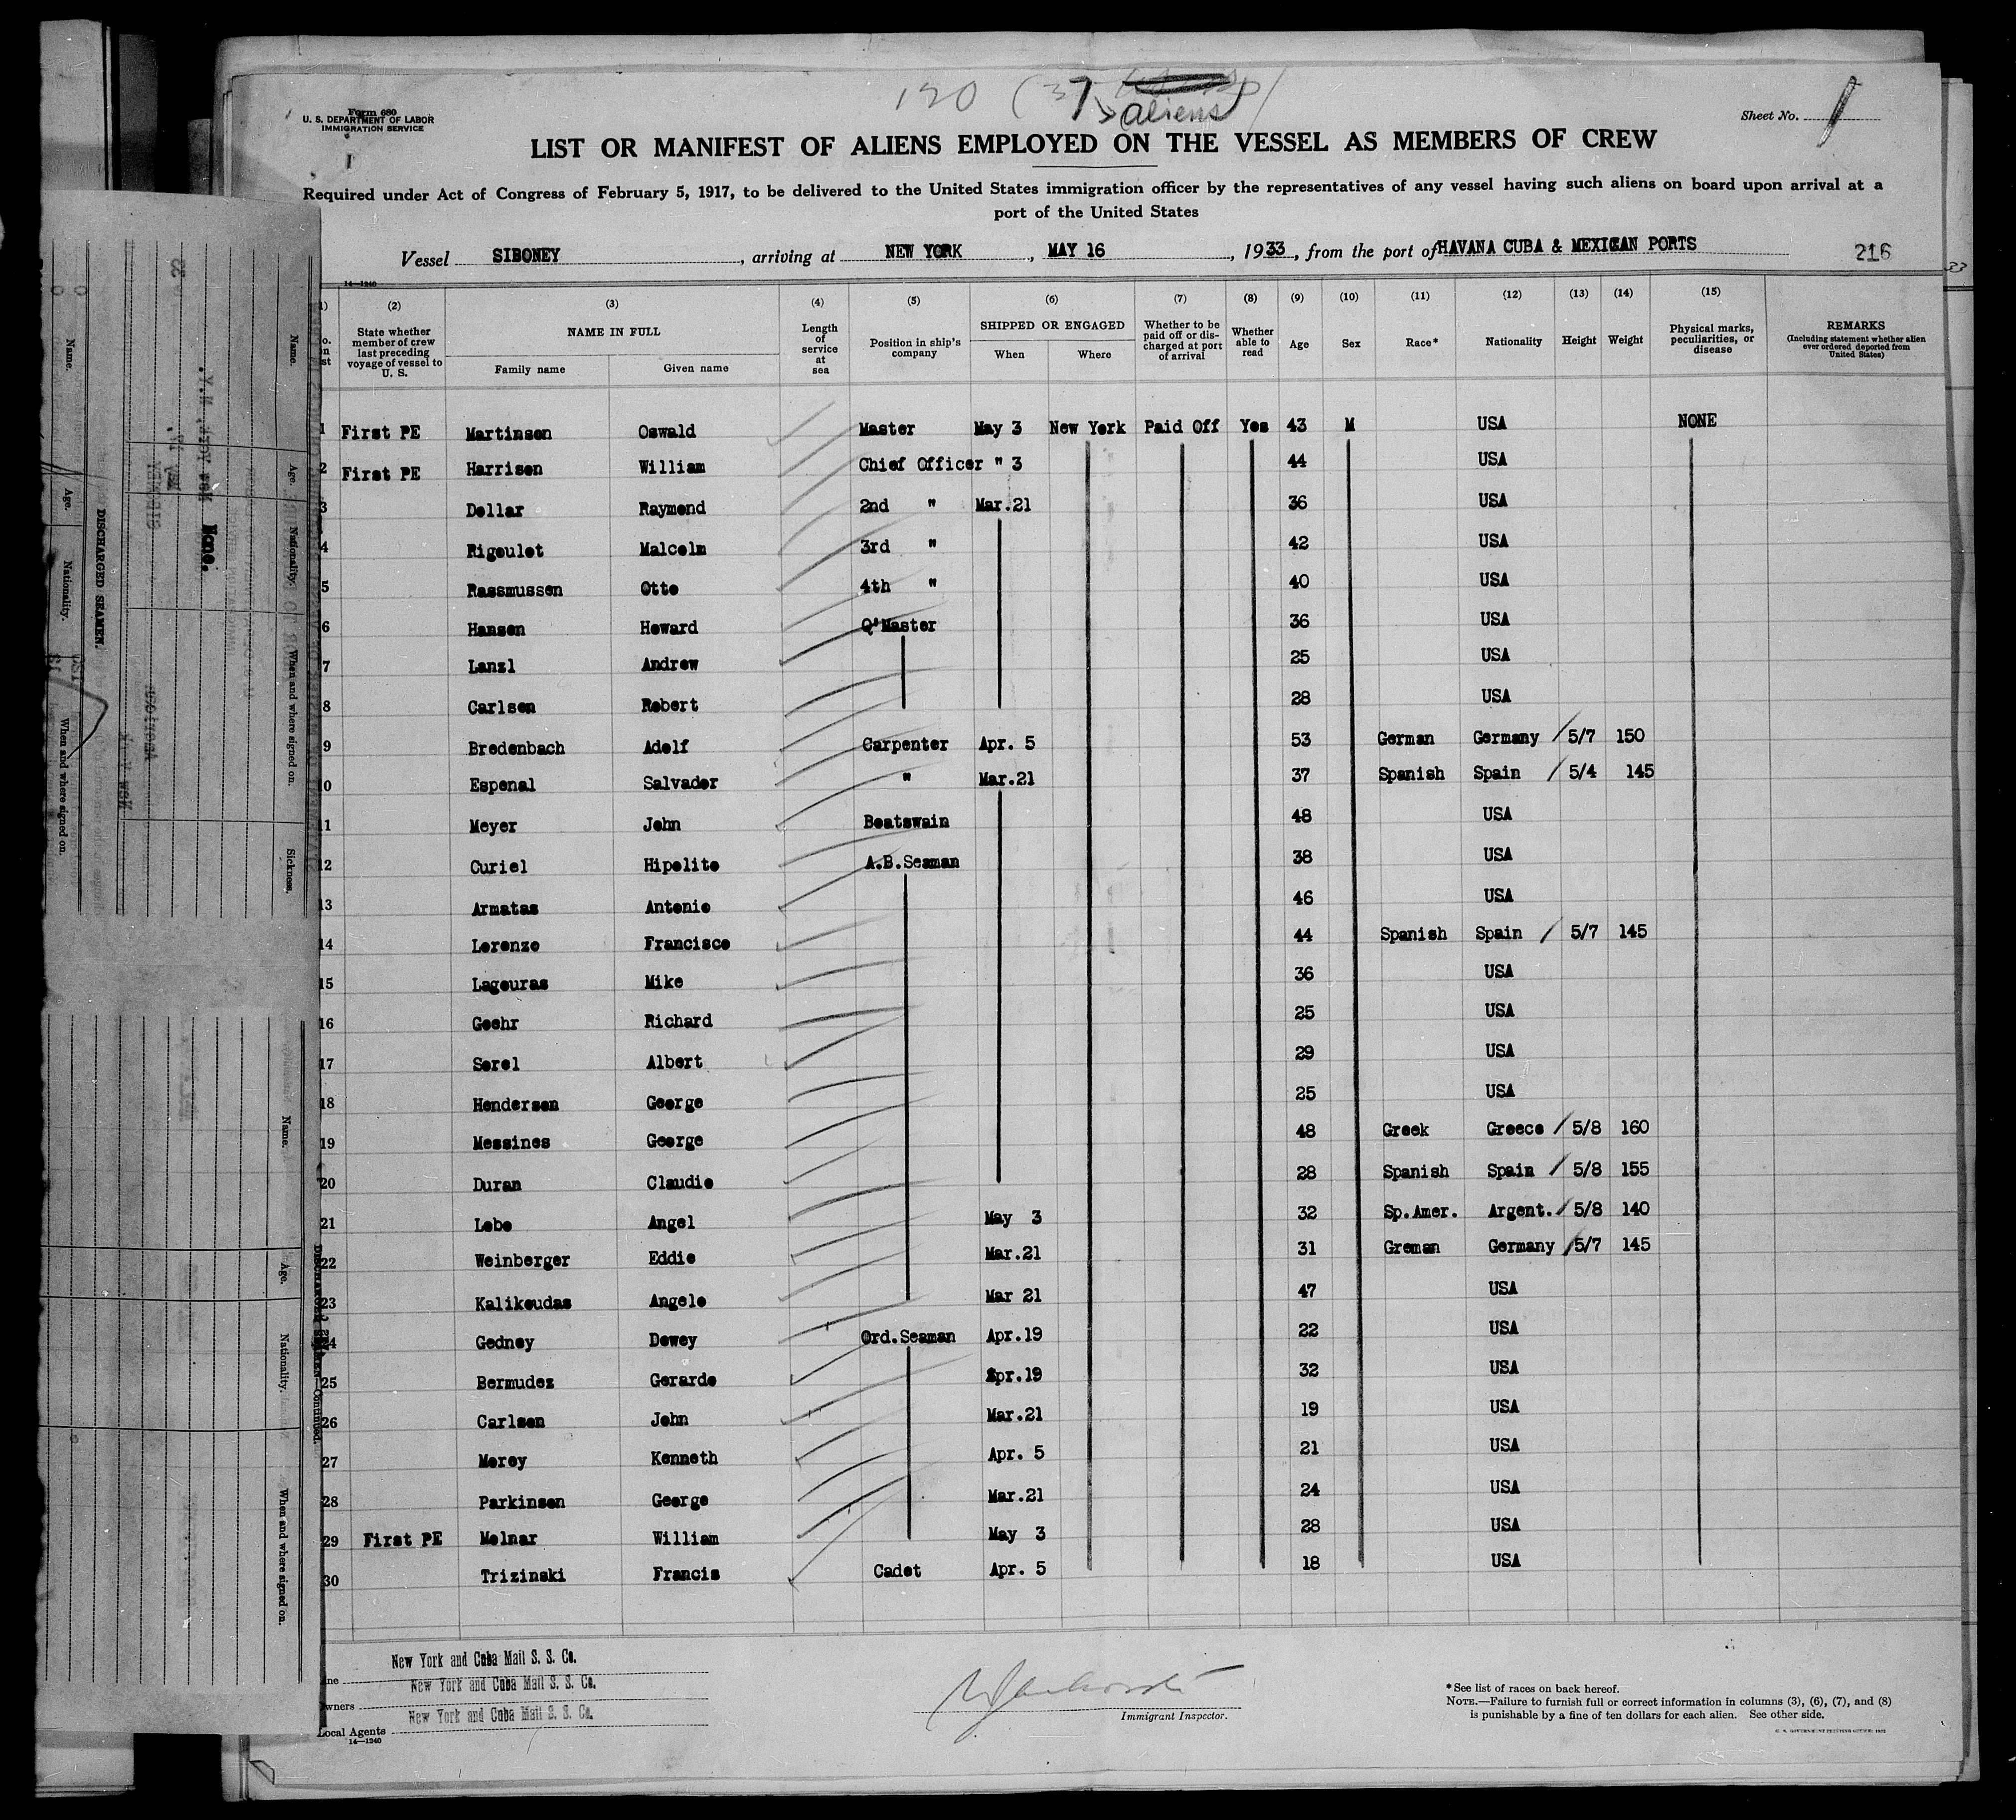 Form 680
U. S. DEPARTMENT OF LABOR
IMMIGRATION SERVICE
I
120 (37 aliens)
Sheet No. 1
LIST OR MANIFEST OF ALIENS EMPLOYED ON THE VESSEL AS MEMBERS OF CREW
Required under Act of Congress of February 5, 1917, to be delivered to the United States immigration officer by the representatives of any vessel having such aliens on board upon arrival at a
port of the United States
Vessel SIBONEY, arriving at NEW YORK, MAY 16, 1933, from the port of HAVANA CUBA & MEXICAN PORTS 216
14—1240
(2) (3) (4) (5) (6) (7) (8) (9) (10) (11) (12) (13) (14) (15)
State whether member of crew last preceding voyage of vessel to U. S.
NAME IN FULL
Family name Given name
Length of service at sea
Position in ship's company
SHIPPED OR ENGAGED
When Where
Whether to be paid off or discharged at port of arrival
Whether able to read
Age
Sex
Race*
Nationality
Height
Weight
Physical marks, peculiarities, or disease
REMARKS
(Including statement whether alien ever ordered deported from United States)
1 First PE Martinsen Oswald Master May 3 New York Paid Off Yes 43 M USA NONE
2 First PE Harrisen William Chief Officer " 3 44 USA
3 Dollar Raymond 2nd " Mar.21 36 USA
4 Rigoulet Malcolm 3rd " 42 USA
5 Rassmussen Otto 4th " 40 USA
6 Hansen Howard Q'Master 36 USA
7 Lanzl Andrew 25 USA
8 Carlsen Robert 28 USA
9 Bredenbach Adolf Carpenter Apr. 5 53 German Germany 5/7 150
10 Espenal Salvador " Mar.21 37 Spanish Spain 5/4 145
11 Meyer John Boatswain 48 USA
12 Curiel Hipolito A.B.Seaman 38 USA
13 Armatas Antonio 46 USA
14 Lorenzo Francisco 44 Spanish Spain 5/7 145
15 Lagouras Mike 36 USA
16 Goehr Richard 25 USA
17 Sorel Albert 29 USA
18 Henderson George 25 USA
19 Messines George 48 Greek Greece 5/8 160
20 Duran Claudio 28 Spanish Spain 5/8 155
21 Lobo Angel May 3 32 Sp.Amer. Argent. 5/8 140
22 Weinberger Eddie Mar.21 31 Greman Germany 5/7 145
23 Kalikoudas Angelo Mar 21 47 USA
24 Gedney Dewey Ord.Seaman Apr.19 22 USA
25 Bermudez Gerardo Apr.19 32 USA
26 Carlsen John Mar.21 19 USA
27 Morey Kenneth Apr. 5 21 USA
28 Parkinson George Mar.21 24 USA
29 First PE Molnar William May 3 28 USA
30 Trizinski Francis Cadet Apr. 5 18 USA
New York and Cuba Mail S. S. Co.
New York and Cuba Mail S. S. Co.
Owners New York and Cuba Mail S. S. Co.
Local Agents
14—1240
Immigrant Inspector.
*See list of races on back hereof.
NOTE.—Failure to furnish full or correct information in columns (3), (6), (7), and (8)
is punishable by a fine of ten dollars for each alien. See other side.
Name.
Age.
Nationality.
When and where signed on.
DISCHARGED SEAMEN.
None.
Name.
Age.
Nationality.
When and where signed on.
Sickness.
Name.
Age.
Nationality.
When and where signed on.